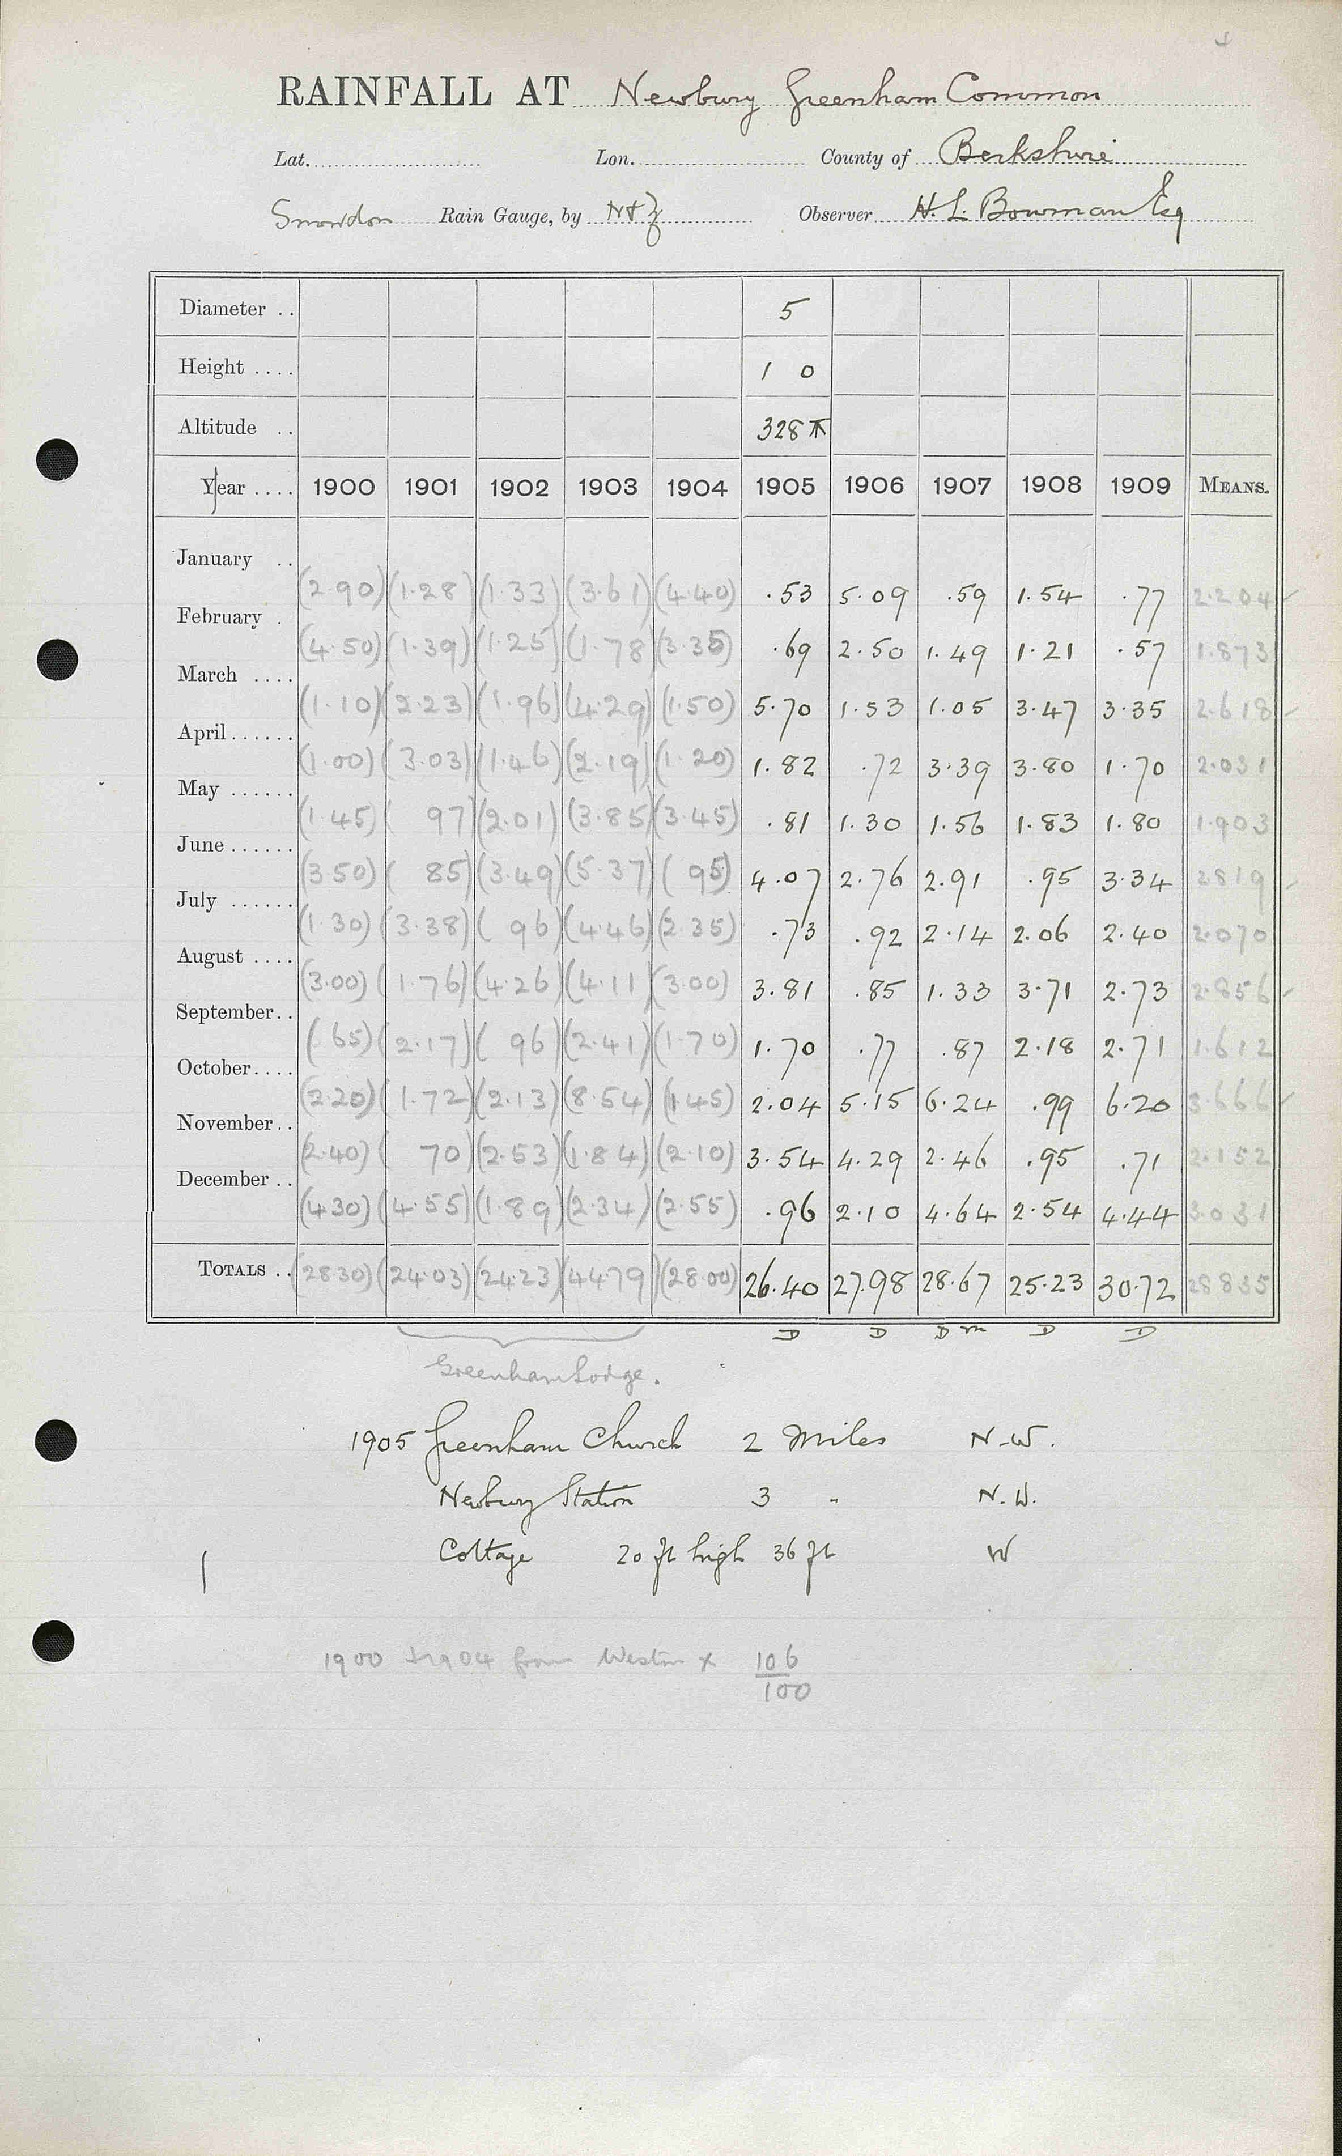 RAINFALL AT Newbury Greenham Common
Lat. Lon. County of Berkshire
Snowdon Rain Gauge, by N+Z Observer H. L. Bowman Esq
Diameter .. 5
Height .... 1 0
Altitude .. 328
Year .... 1900 1901 1902 1903 1904 1905 1906 1907 1908 1909 MEANS.
January .. (2.90) (1.28) (1.33) (3.61) (4.40) .53 5.09 .59 1.54 .77 2.204
February . (4.50) (1.39) (1.25) (1.78) (3.35) .69 2.50 1.49 1.21 .57 1.873
March .... (1.10) (2.23) (1.96) (4.29) (1.50) 5.70 1.53 1.05 3.47 3.35 2.618
April...... (1.00) (3.03) (1.46) (2.19) (1.20) 1.82 .72 3.39 3.80 1.70 2.031
May ...... (1.45) ( 97) (2.01) (3.85) (3.45) .81 1.30 1.56 1.83 1.80 1.903
June ...... (3.50) ( 85) (3.49) (5.37) ( 95) 4.07 2.76 2.91 .95 3.34 2.819
July ...... (1.30) (3.38) ( 96) (4.46) (2.35) .73 .92 2.14 2.06 2.40 2.070
August .... (3.00) (1.76) (4.26) (4.11) (3.00) 3.81 .85 1.33 3.71 2.73 2.856
September.. ( 65) (2.17) ( 96) (2.41) (1.70) 1.70 .77 .87 2.18 2.71 1.612
October.... (2.20) (1.72) (2.13) (8.54) (1.45) 2.04 5.15 6.24 .99 6.20 3.666
November.. (2.40) ( 70) (2.53) (1.84) (2.10) 3.54 4.29 2.46 .95 .71 2.152
December .. (4.30) (4.55) (1.89) (2.34) (2.55) .96 2.10 4.64 2.54 4.44 3.031
TOTALS .. (28.30) (24.03) (24.23) (44.79) (28.00) 26.40 27.98 28.67 25.23 30.72 28.835
D D D m D D
Greenham Lodge.
1905 Greenham Church 2 Miles N.W.
Newbury Station 3 " N.W.
Cottage 20 ft high 36 ft W
1900 + 1904 from Weston x 106
100